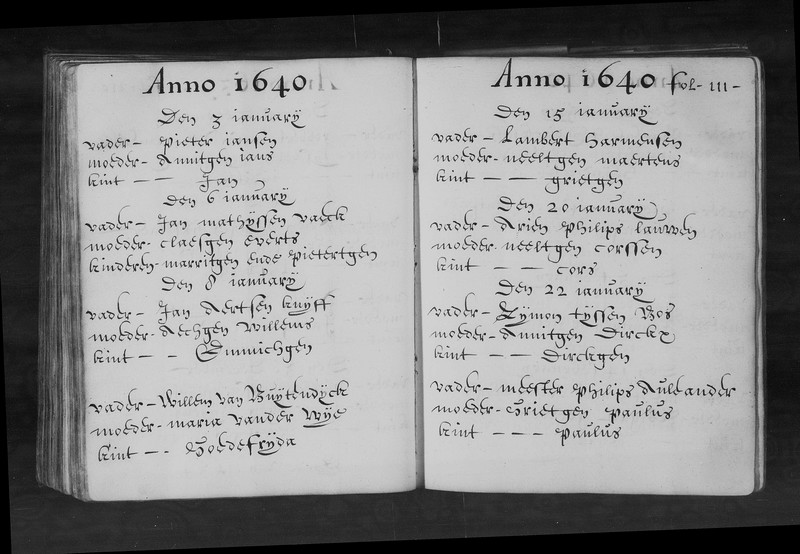 Anno 1640
Den 3 ianuarÿ
vader - Pieter iansen
moeder - Annitgen ians
kint - - Jan
Den 6 ianuarÿ
vader - Jan mathÿssen vaeck
moeder - claesgen everts
kinderen - marritgen ende Pietertgen
Den 8 ianuarÿ
vader - Jan Aertsen kuÿff
moeder - Aechgen Willems
kint - - Emmichgen
vader - Willem van Buÿtendÿck
moeder - maria vander Wÿe
kint - - Goedefrÿda
Anno 1640 fol - III -
Den 15 ianuarÿ
vader - Lambert harmensen
moeder - neeltgen maertens
kint - - - grietgen
Den 20 ianuarÿ
vader - Arien Philips lauwen
moeder - neeltgen corssen
kint - - - cors
Den 22 ianuarÿ
vader - Zÿmon tÿssen Bos
moeder - Annitgen Dirckx
kint - - - Dirckgen
vader - meester Philips Auleander
moeder - Grietgen Paulus
kint - - - Paulus